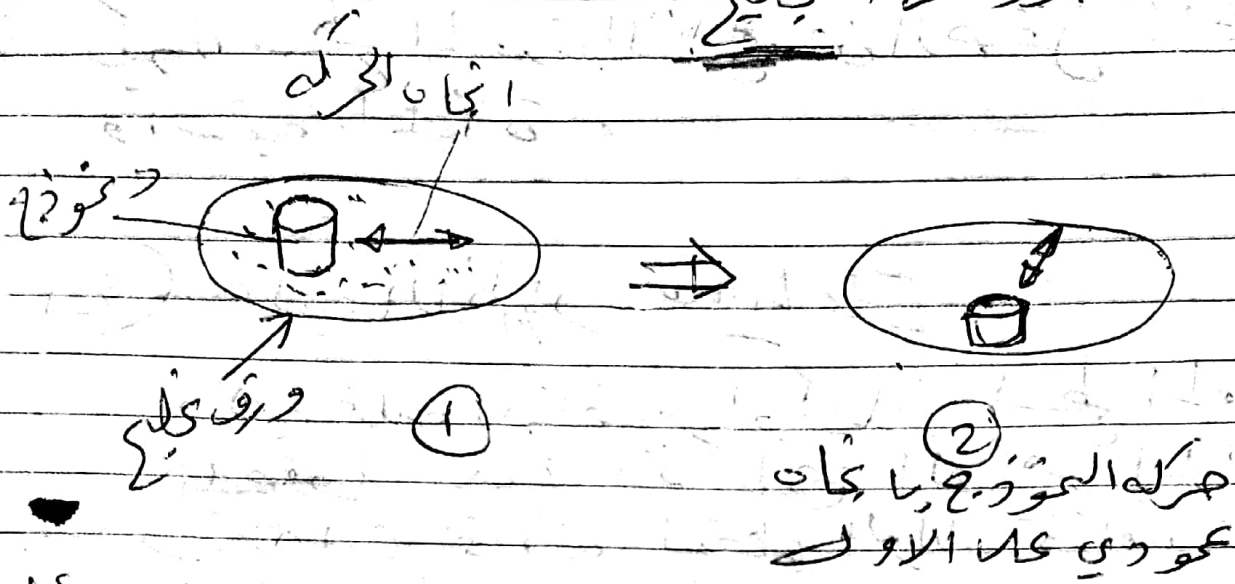 اتجاه الحركه
نموذج
ورق تجليخ
1
2
حركه النموذج باتجاه
عمودي على الاول